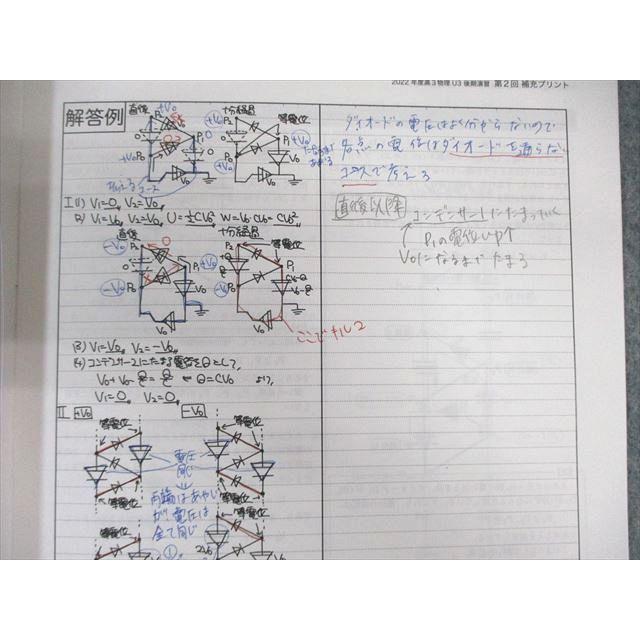 2022 年度高3物理 U3 後期演習 第2回 補充プリント
解答例
直後
十分経過
等電位
I (1) V₁=0, V₂=V₀,
(2) V₁=V₀, V₂=V₀, U=½CV₀² W=V₀・CV₀=CV₀²
直後
十分経過
等電位
ここでキルヒ
(3) V₁=V₀, V₂=-V₀,
(4) コンデンサー2にたまる電荷をQとして,
Q=CV₀ より,
V₁=0, V₂=0,
II +V₀ -V₀
等電位
等電位
電圧
同じ
等電位
等電位
両端はあやしい
が電圧は
全て同じ
等電位
等電位
①
2V₀
ダイオードの電圧はよく分からないので
各点の電位はダイオードを通らない
コースで考える
直後以降
コンデンサー1にたまっていく
P₁の電位UP↑
V₀になるまでたまる